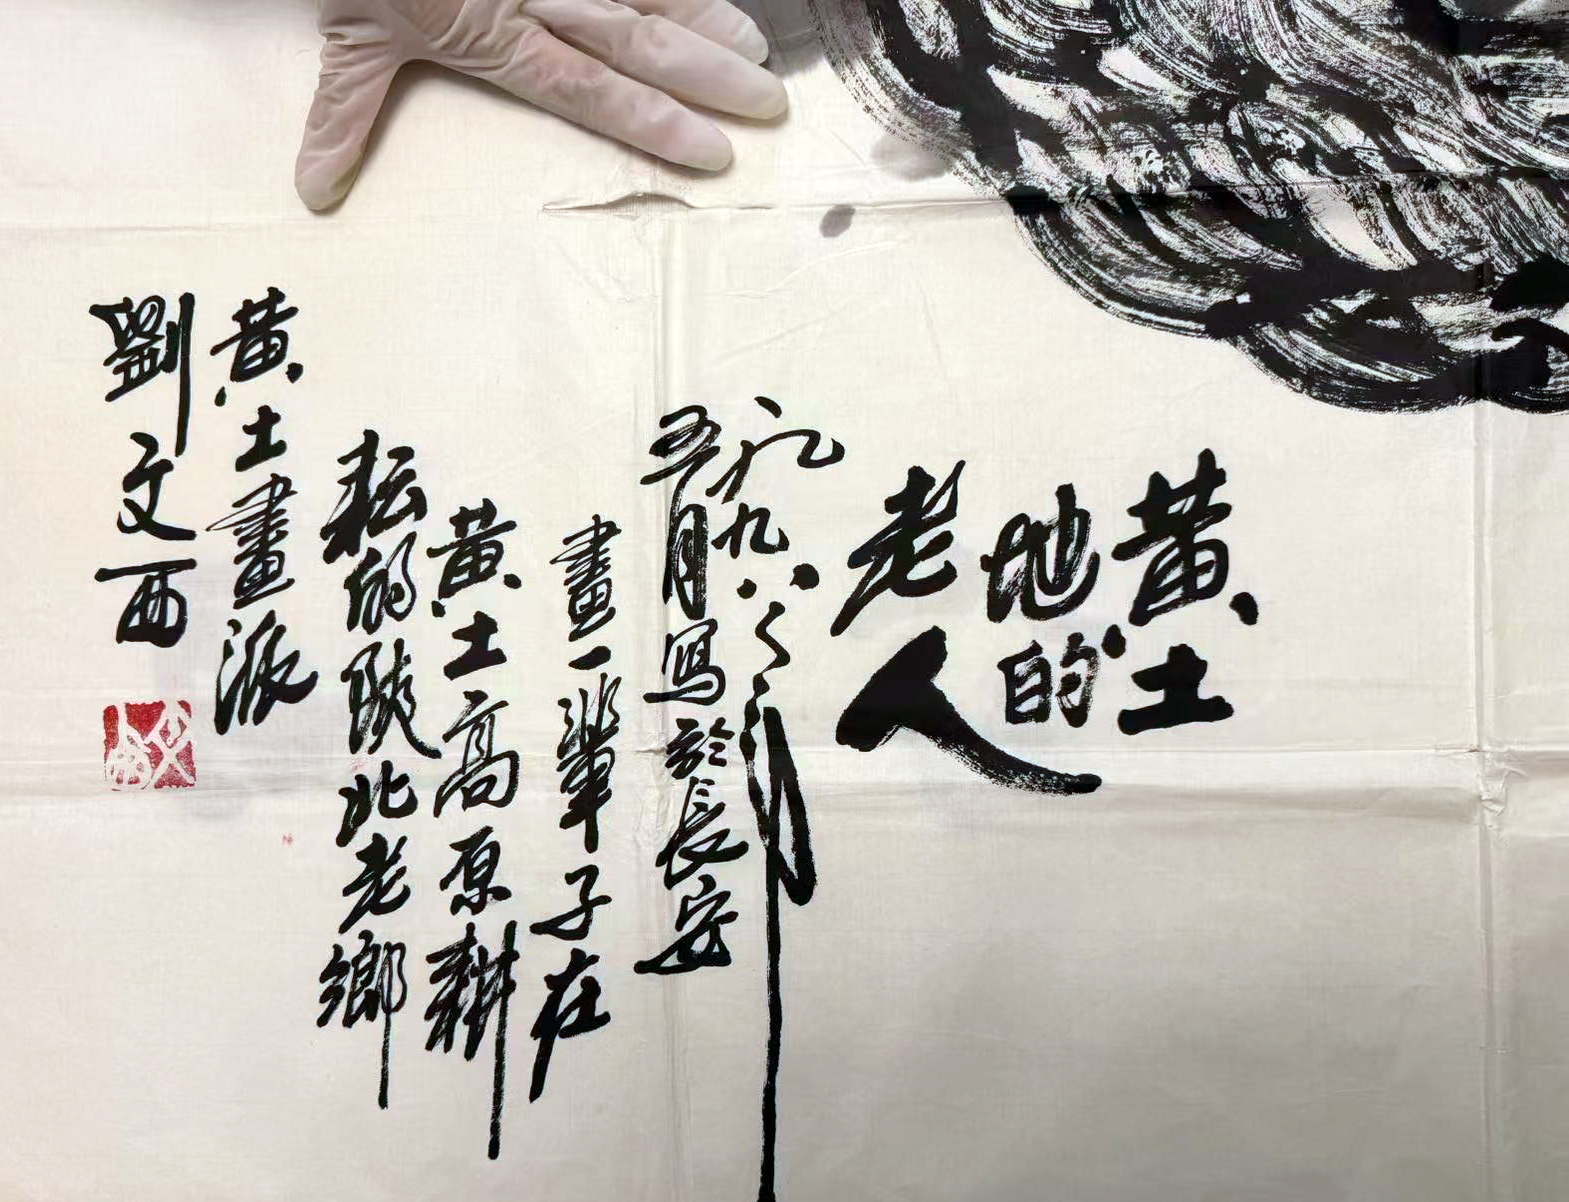 黄土
地的
老人
一九九八年
五月寫於長安
畫一輩子在
黄土高原耕
耘的陝北老鄉
黄土畫派
劉文西